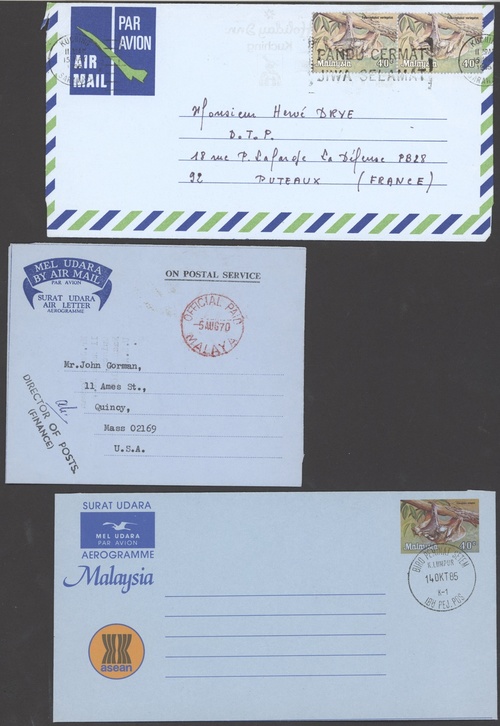 PAR
AVION
AIR
MAIL
Holiday Inn
Kuching
KUCHING
PANDU CERMAT
JIWA SELAMAT
Malaysia 40¢
Malaysia 40¢
Monsieur Hervé DRYE
D.T.P.
18 rue P. Lafarge La Défense PB28
92 PUTEAUX (FRANCE)
MEL UDARA
BY AIR MAIL
PAR AVION
SURAT UDARA
AIR LETTER
AEROGRAMME
ON POSTAL SERVICE
OFFICIAL PAID
-5AUG70
MALAYA
Mr.John Gorman,
11 Ames St.,
Quincy,
Mass 02169
U.S.A.
DIRECTOR OF POSTS.
(FINANCE)
SURAT UDARA
MEL UDARA
PAR AVION
AEROGRAMME
Malaysia
asean
Malaysia 40¢
K. LUMPUR
14OKT85
K-1
IBU PEJ. POS